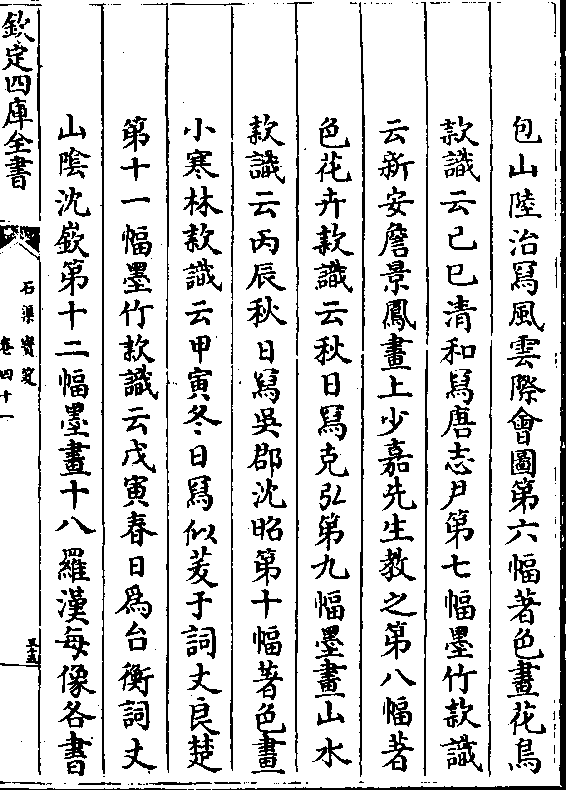 包山陸治冩風雲際會圖第六幅著色畫花鳥
款識云己巳清和冩唐志尹第七幅墨竹款識
云新安詹景鳳畫上少嘉先生教之第八幅著
色花卉款識云秋日冩克弘第九幅墨畫山水
款識云丙辰秋日冩吳郡沈昭第十幅著色畫
小寒林款識云甲寅冬日冩似茇于詞丈良楚
第十一幅墨竹款識云戊寅春日為台衡詞丈
山陰沈㰸第十二幅墨畫十八羅漢每像各書
欽定四庫全書
石渠寳笈
卷四十一